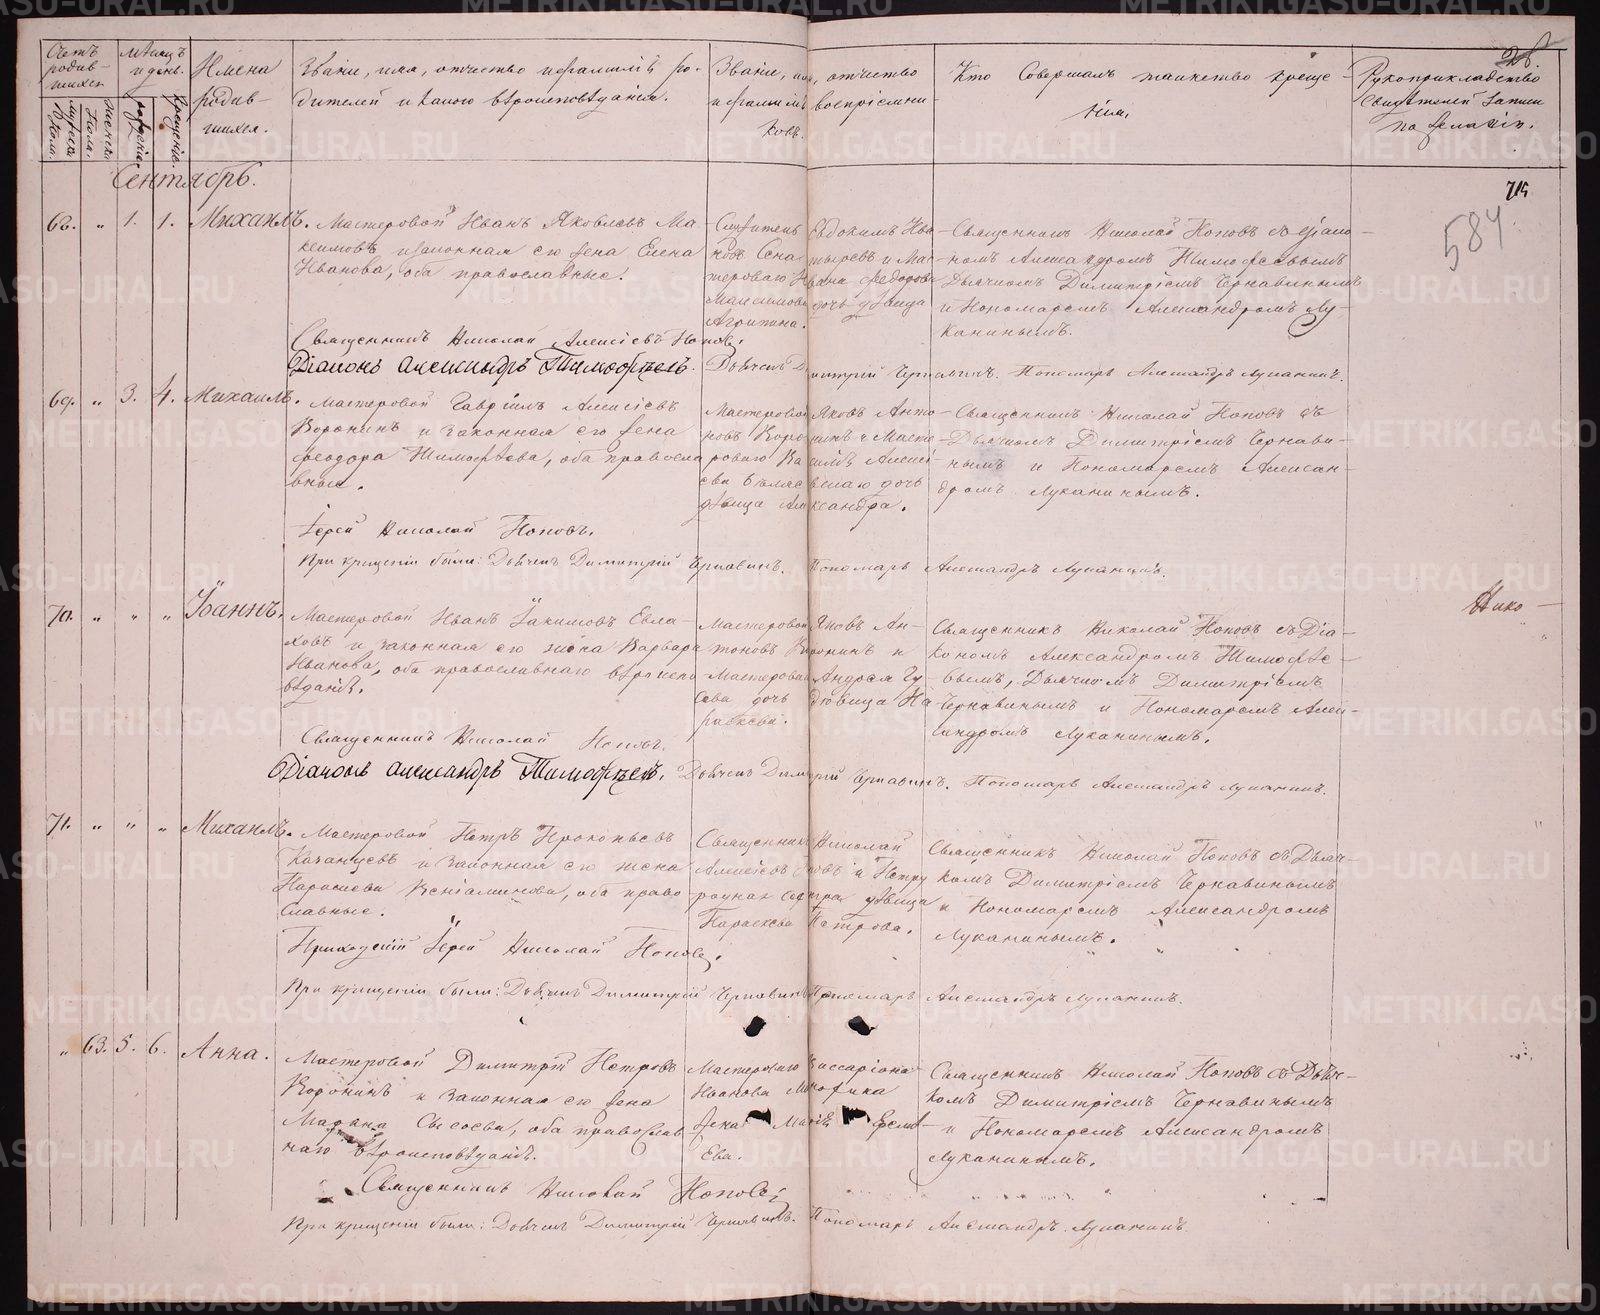 28.
Счетъ родив-шихся
Мѣсяцъ и день.
Имена родив-шихся.
Званіе, имя, отчество и фамилія ро-
дителей и какого вѣроисповѣданія.
Званіе, имя, отчество
и фамилія воспріемни-
ковъ.
Кто совершалъ таинство креще-
нія.
Рукоприкладство
свидѣтелей записи
по желанію.
Мужеска пола.
Женска
рожденія.
крещенія.
Сентябрь.
715
584
68. „ 1. 1. Михаилъ.
Мастеровой Иванъ Яковлевъ Ма-
ксимовъ и законная его жена Елена
Иванова, оба православные.
Служитель Евдокимъ Ива-
новъ и Мас-
тероваго Ивана Федорова
Максимова дочь дѣвица
Агрипина.
Священникъ Николай Поповъ съ Діако-
номъ Александромъ Тимофеевымъ
Дьячкомъ Димитріемъ Чернавинымъ
и Пономаремъ Александромъ Лу-
канинымъ.
Священникъ Николай Алексіевъ Поповъ.
Діаконъ Александръ Тимофѣевъ. Дьячекъ Димитрій Чернавинъ. Пономарь Александръ Луканинъ.
69. „ 3. 4. Михаилъ.
Мастеровой Гавріилъ Алексіевъ
Воронинъ и законная его жена
Феодора Тимофѣева, оба правосла
вные.
Мастеровой Яковъ Анто-
новъ Воронинъ и Масте-
роваго Василія Алексі-
ева дочь
дѣвица Александра.
Священникъ Николай Поповъ съ
Дьячкомъ Димитріемъ Чернави-
нымъ и Пономаремъ Алексан-
дромъ Луканинымъ.
Іерей Николай Поповъ.
При крещеніи были: Дьячекъ Димитрій Чернавинъ. Пономарь Александръ Луканинъ.
70. „ „ „ Іоаннъ.
Мастеровой Иванъ Іакимовъ Евла-
ховъ и законная его жена Варвара
Иванова, оба православнаго вѣроиспо
вѣданія.
Мастеровой Яковъ Ан-
тоновъ Воронинъ и
Мастероваго Андрея Гу
сева дочь дѣвица Па
раскева.
Священникъ Николай Поповъ съ Діа-
кономъ Александромъ Тимофѣе-
вымъ, Дьячкомъ Димитріемъ
Чернавинымъ и Пономаремъ Алек-
сандромъ Луканинымъ.
Нико—
Священникъ Николай Поповъ.
Діаконъ Александръ Тимофѣевъ. Дьячекъ Димитрій Чернавинъ. Пономарь Александръ Луканинъ.
71. „ „ „ Михаилъ.
Мастеровой Петръ Прокопьевъ
Казанцевъ и законная его жена
Параскева Веніаминова, оба право
славные.
Священникъ Николай
Алексіевъ Поповъ и
дѣвица
Параскева Петрова.
Священникъ Николай Поповъ съ Дьяч-
комъ Димитріемъ Чернавинымъ
и Пономаремъ Александромъ
Луканинымъ.
Приходскій Іерей Николай Поповъ.
При крещеніи были: Дьячекъ Димитрій Чернавинъ Пономарь Александръ Луканинъ.
„ 63. 5. 6. Анна.
Мастеровой Димитрій Петровъ
Воронинъ и законная его жена
Марѳа Сысоева, оба православ-
наго вѣроисповѣданія.
Мастероваго Виссаріона
Иванова
жена Марія
ева.
Священникъ Николай Поповъ съ Дьяч-
комъ Димитріемъ Чернавинымъ
и Пономаремъ Александромъ
Луканинымъ.
Священникъ Николай Поповъ
При крещеніи были: Дьячекъ Димитрій Чернавинъ. Пономарь Александръ Луканинъ.
METRIKI.GASO-URAL.RU